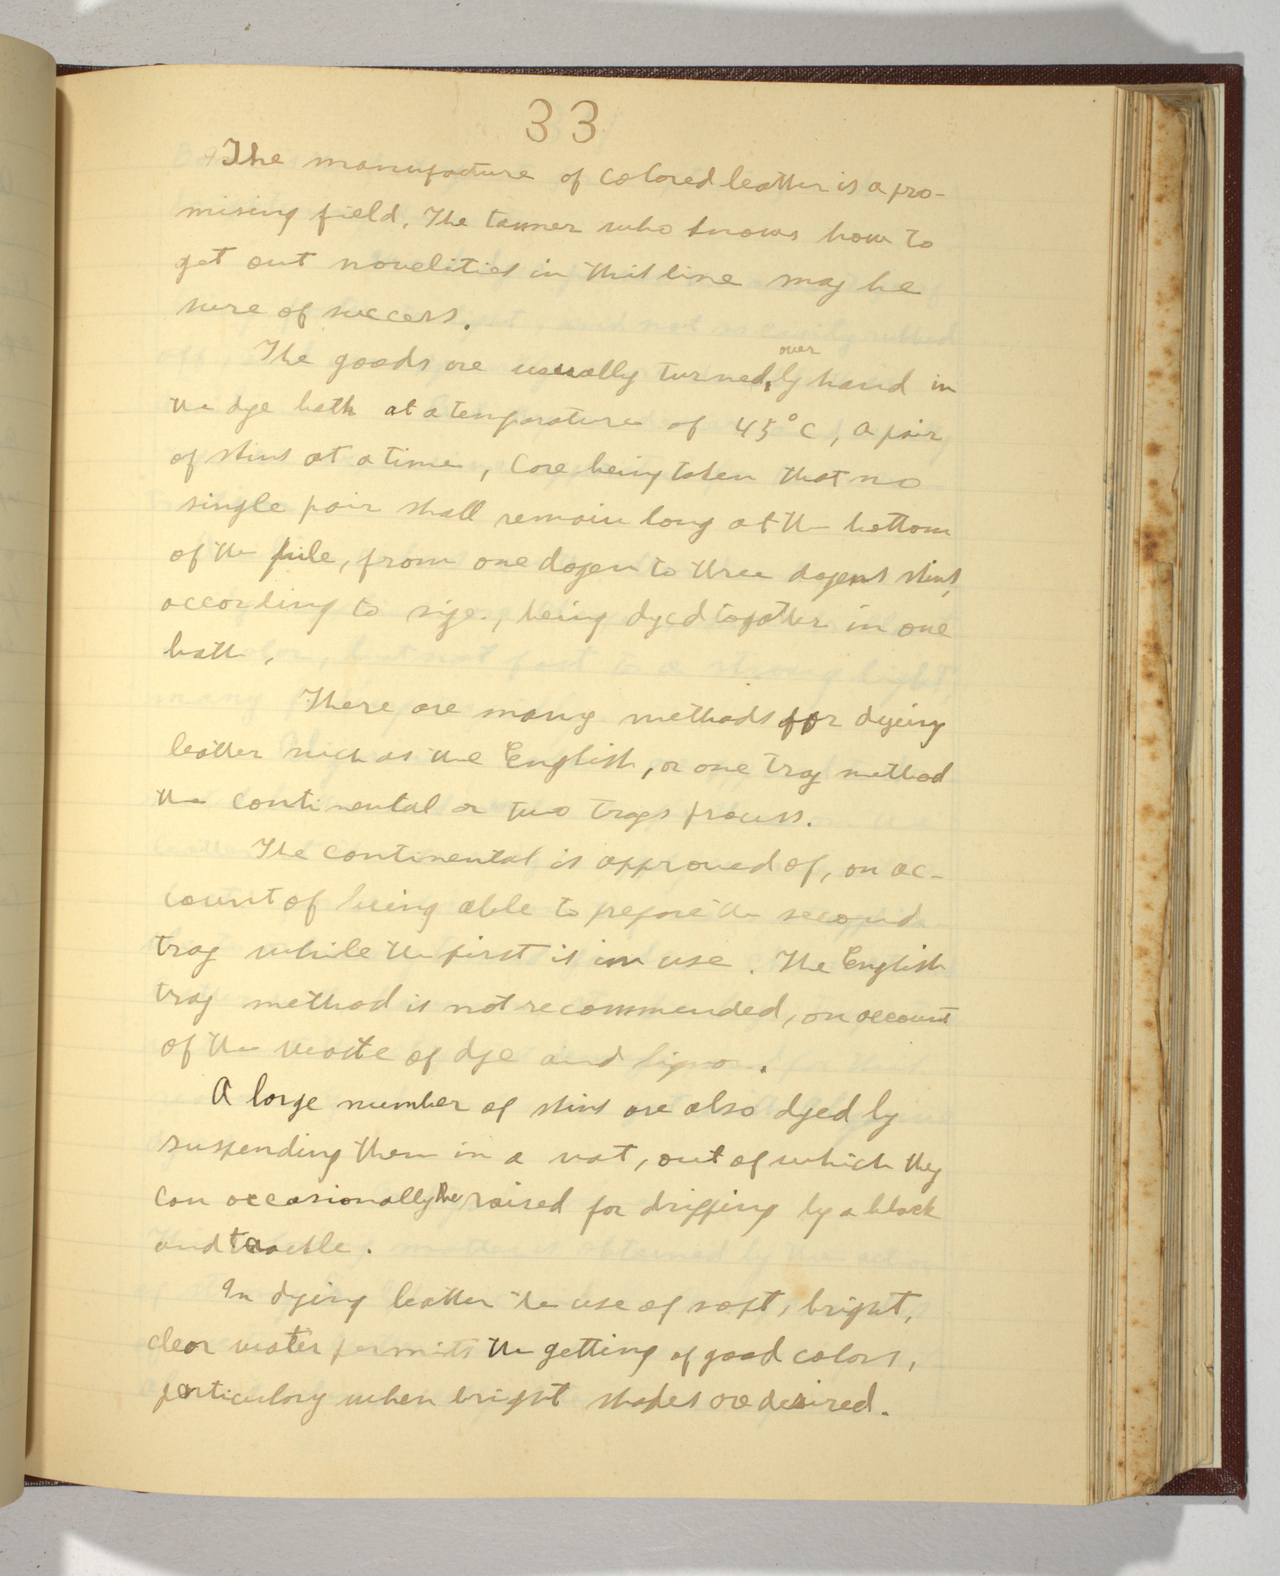 33
The manufacture of colored leather is a pro-
mising field. The tanner who knows how to
get out novelities in this line may be
sure of success.
The goods are usually turned over by hand in
the dye bath at a temperature of 45°C, a pair
of skins at a time, Care being taken that no
single pair shall remain long at the bottom
of the pile, from one dozen to three dozens skins,
according to size, being dyed together in one
bath.
There are many methods for dyeing
leather such as the English, or one tray method
the continental or two trays process.
The continental is approved of, on ac-
count of being able to prepare the second
tray while the first is in use. The English
tray method is not recommended, on account
of the waste of dye and liquor.
A large number of skins are also dyed by
suspending them in a vat, out of which they
can occasionally be raised for dripping by a block
and tackle.
In dying leather the use of soft, bright,
clear water permits the getting of good colors,
particulary when bright shades are desired.